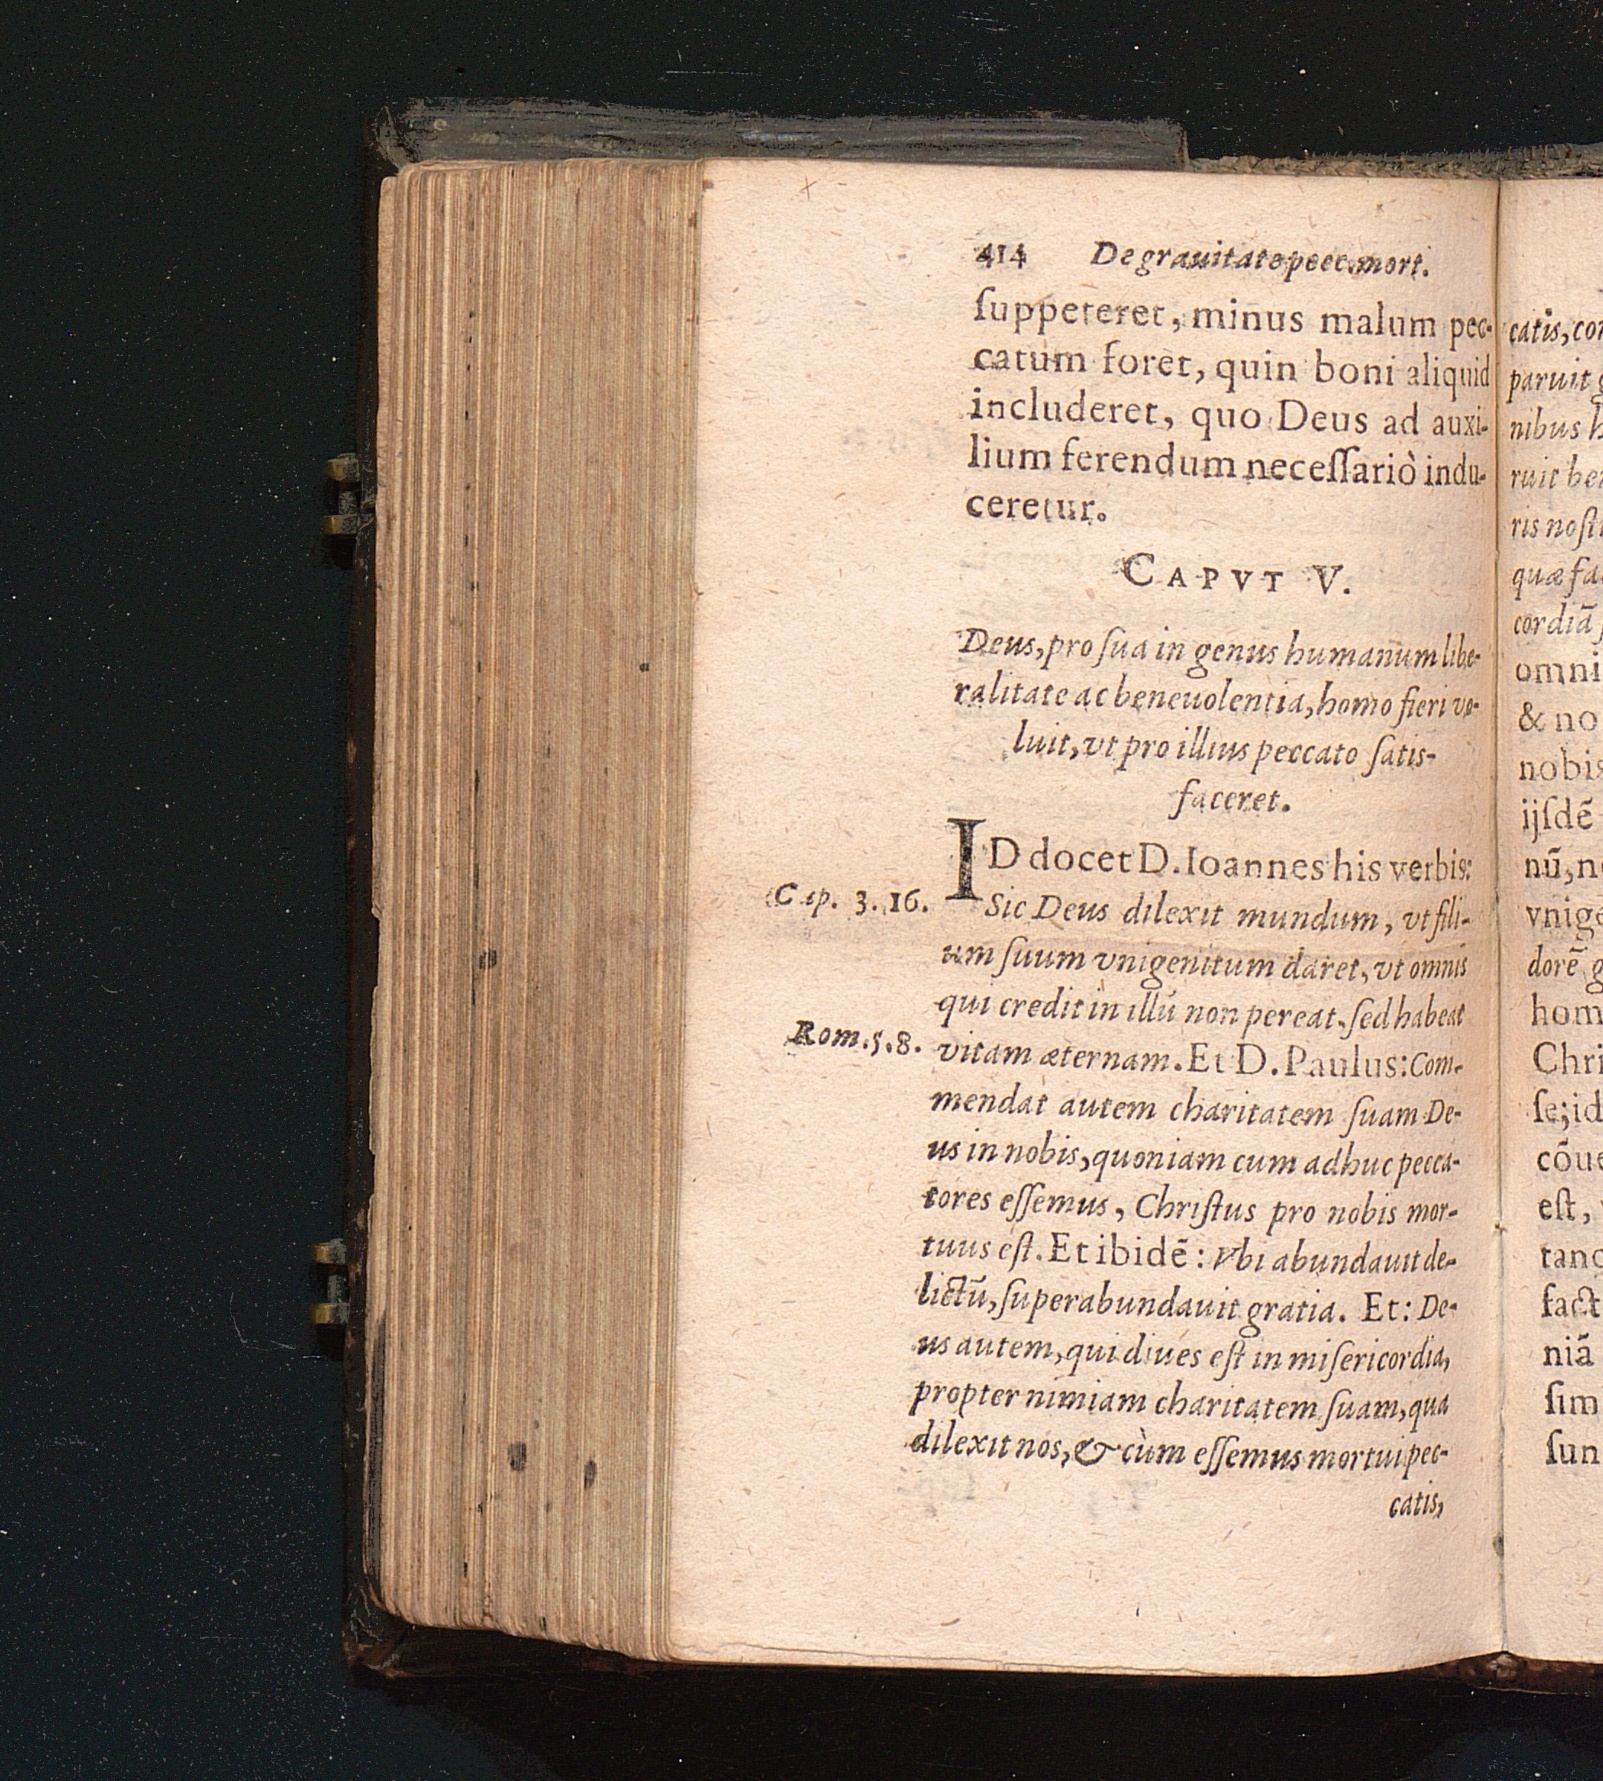 414 De grauitate pecc. mort.
ſuppeteret, minus malum pec-
catum foret, quin boni aliquid
includeret, quo Deus ad auxi-
lium ferendum neceſſariò indu-
ceretur.
CAPVT V.
Deus, pro ſua in genus humanum libe-
ralitate ac beneuolentia, homo fieri vo-
luit, vt pro illius peccato ſatis-
faceret.
ID docet D. Ioannes his verbis:
Cap. 3. 16.
Sic Deus dilexit mundum, vt fili-
um ſuum vnigenitum daret, vt omnis
qui credit in illū non pereat, ſed habeat
Rom. 5. 8.
vitam æternam. Et D. Paulus: Com-
mendat autem charitatem ſuam De-
us in nobis, quoniam cum adhuc pecca-
tores eſſemus, Chriſtus pro nobis mor-
tuus eſt. Et ibidē: Vbi abundauit de-
lictū, ſuperabundauit gratia. Et: De-
us autem, qui diues eſt in miſericordia,
propter nimiam charitatem ſuam, qua
dilexit nos, & cùm eſſemus mortui pec-
catis,
catis, con
paruit g
nibus h
ruit be
ris noſt
quæ fa
cordiā
omni
& no
nobis
ijſdē
nū, n
vnige
dorē g
hom
Chri
ſe; id
cōue
eſt,
tanc
fact
niā
ſim
ſun